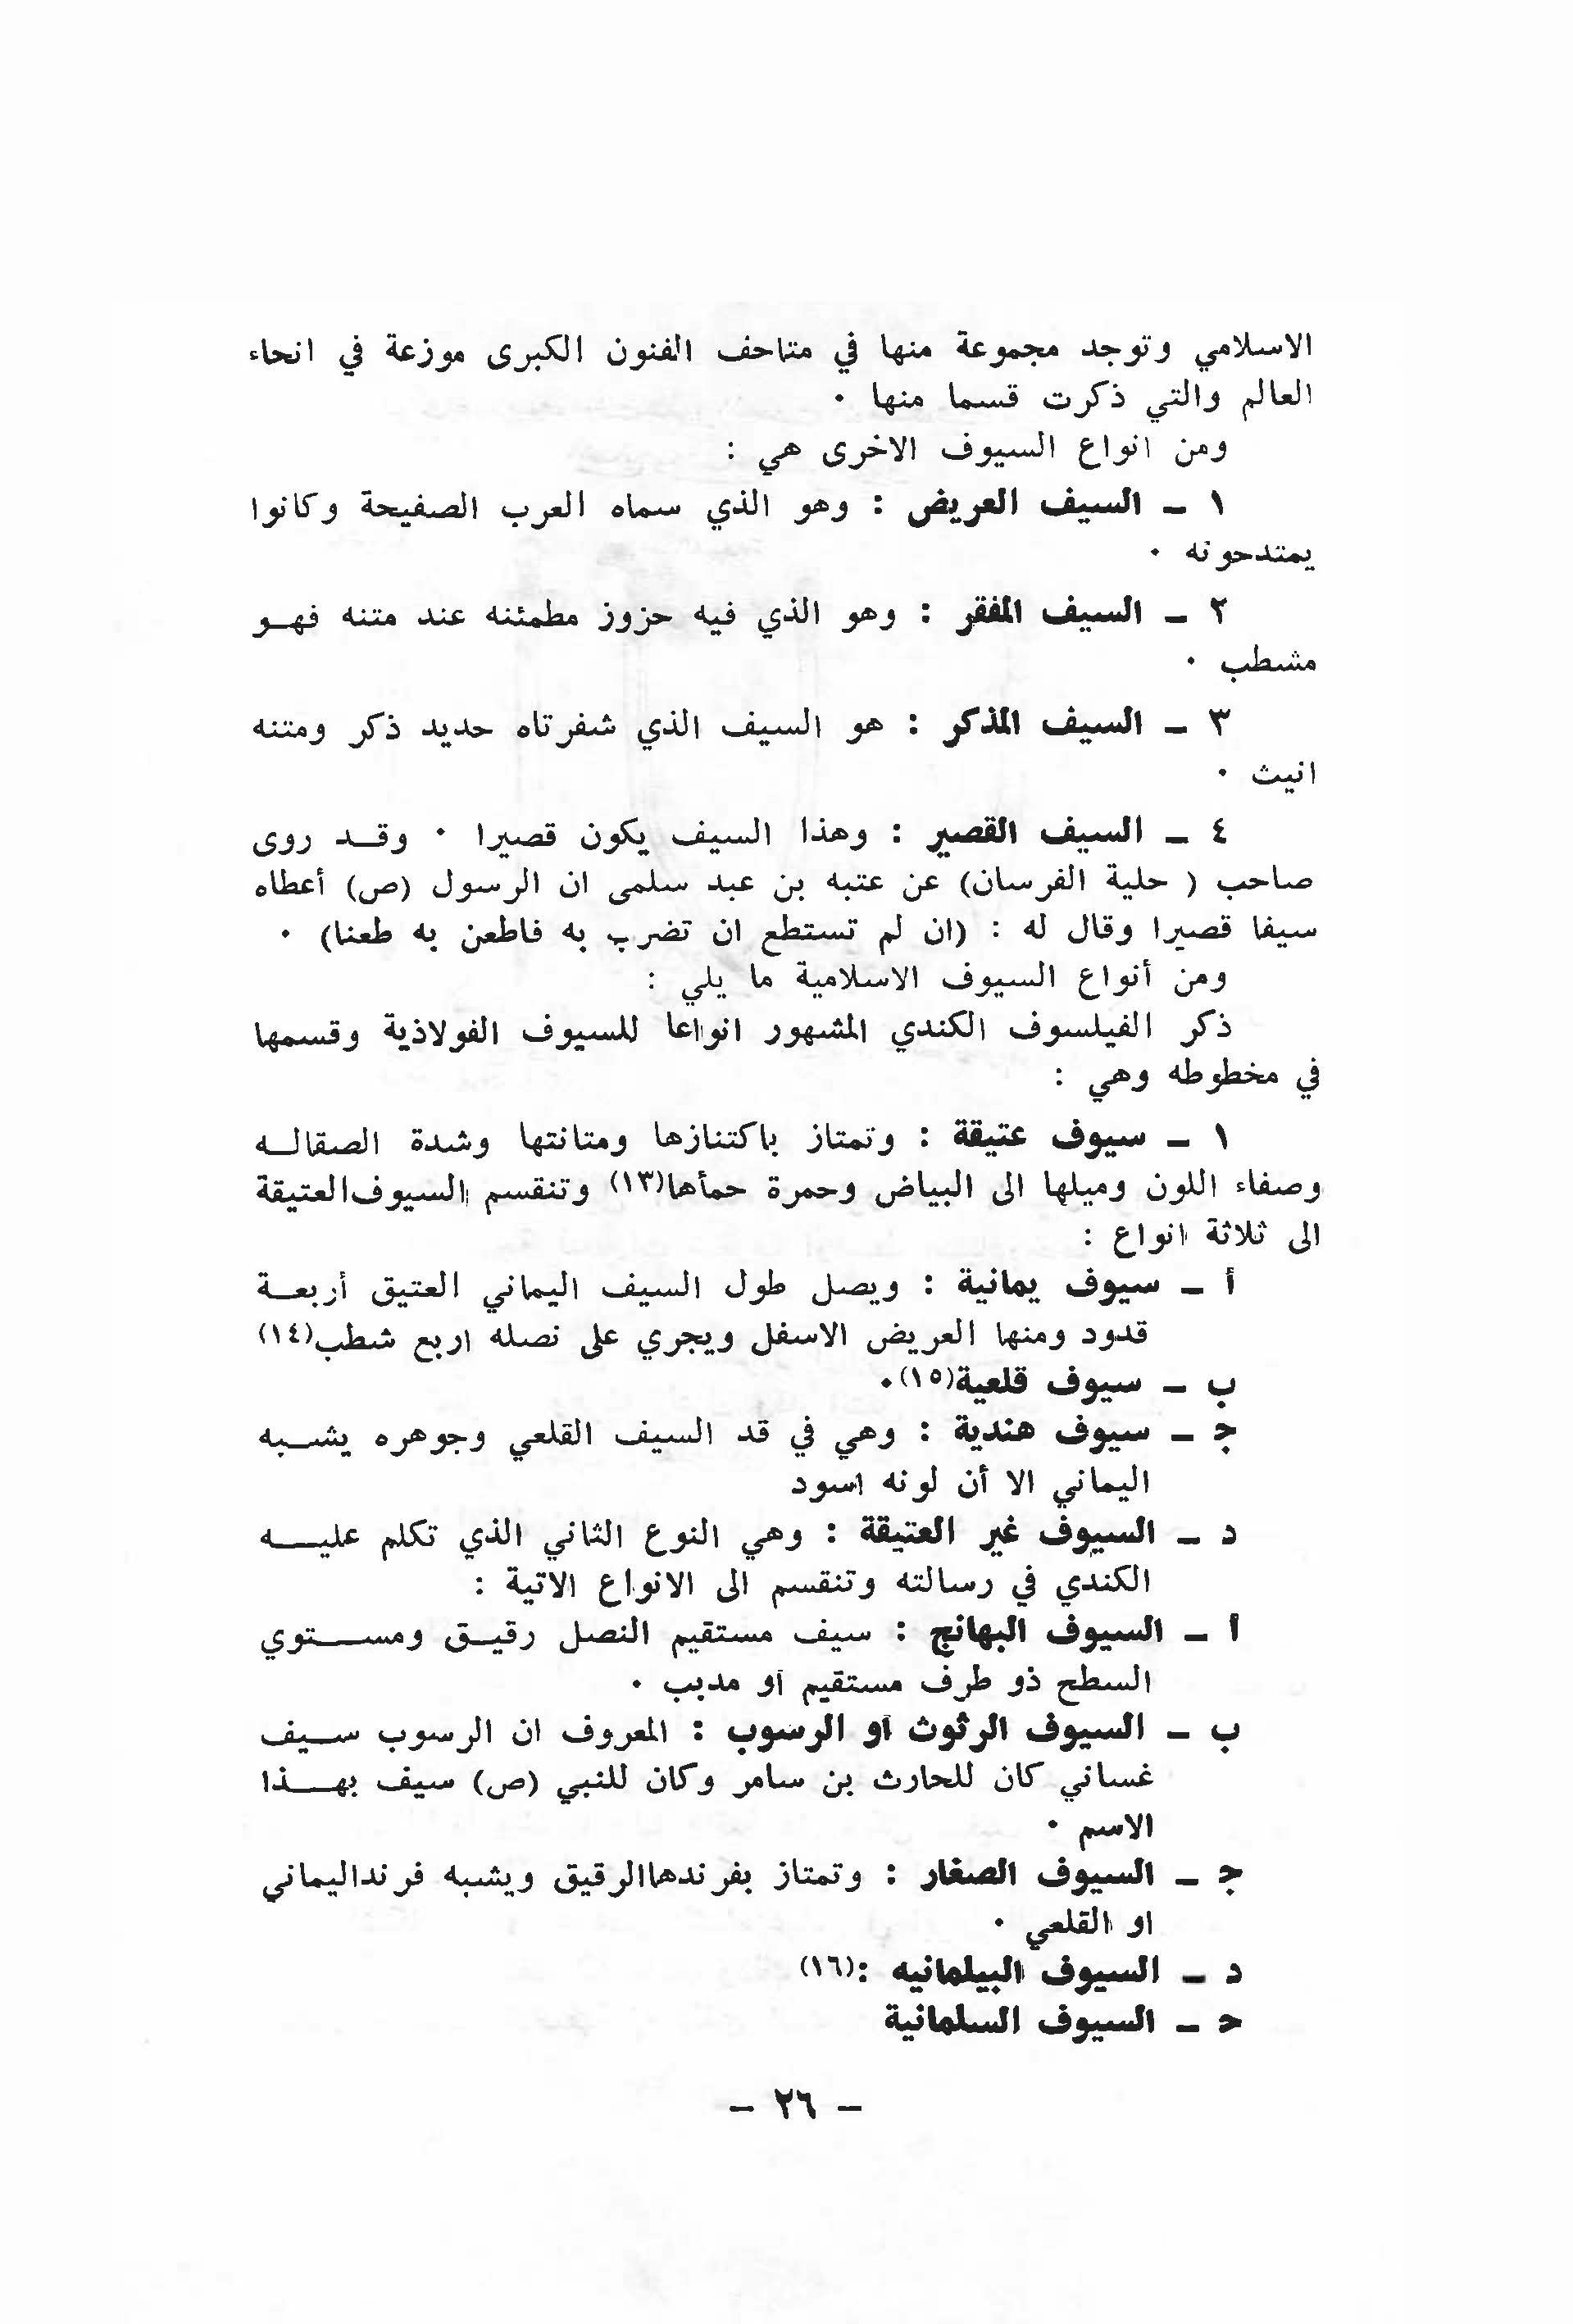 الاسلامي وتوجد مجموعة منها في متاحف الفنون الكبرى موزعة في انحاء
العالم والتي ذكرت قسما منها ٠
ومن انواع السيوف الاخرى هي :
١ ـ السيف العريض : وهو الذي سماه العرب الصفيحة وكانوا
يمتدحونه ٠
٢ ـ السيف المفقر : وهو الذي فيه حزوز مطمئنه عند متنه فهـو
مشطب ٠
٣ ـ السيف المذكر : هو السيف الذي شفرتاه حديد ذكر ومتنه
انيث ٠
٤ ـ السيف القصير : وهذا السيف يكون قصيرا ٠ وقـد روى
صاحب ( حلية الفرسان) عن عتبه بن عبد سلمى ان الرسول (ص) أعطاه
سيفا قصيرا وقال له : (ان لم تستطع ان تضرب به فاطعن به طعنا) ٠
ومن أنواع السيوف الاسلامية ما يلي :
ذكر الفيلسوف الكندي المشهور انواعا للسيوف الفولاذية وقسمها
في مخطوطه وهي :
١ ـ سيوف عتيقة : وتمتاز باكتنازها ومتانتها وشدة الصقالـه
وصفاء اللون وميلها الى البياض وحمرة حمأها(١٣) وتنقسم السيوف العتيقة
الى ثلاثة انواع :
أ ـ سيوف يمانية : ويصل طول السيف اليماني العتيق أربعـة
قدود ومنها العريض الاسفل ويجري على نصله اربع شطب(١٤)
ب ـ سيوف قلعية(١٥)٠
جـ ـ سيوف هندية : وهي في قد السيف القلعي وجوهره يشـبه
اليماني الا أن لونه اسود
د ـ السيوف غير العتيقة : وهي النوع الثاني الذي تكلم عليـــه
الكندي في رسالته وتنقسم الى الانواع الاتية :
أ ـ السيوف البهانج : سيف مستقيم النصل رقيـق ومســـتوي
السطح ذو طرف مستقيم أو مدبب ٠
ب ـ السيوف الرثوث أو الرسوب : المعروف ان الرسوب سـيف
غساني كان للحارث بن سامر وكان للنبي (ص) سيف بهـــذا
الاسم ٠
جـ ـ السيوف الصغار : وتمتاز بفرندها الرقيق ويشبه فرند اليماني
او القلعي ٠
د ـ السيوف البيلمانيه :(١٦)
حـ ـ السيوف السلمانية
ـ ٢٦ ـ